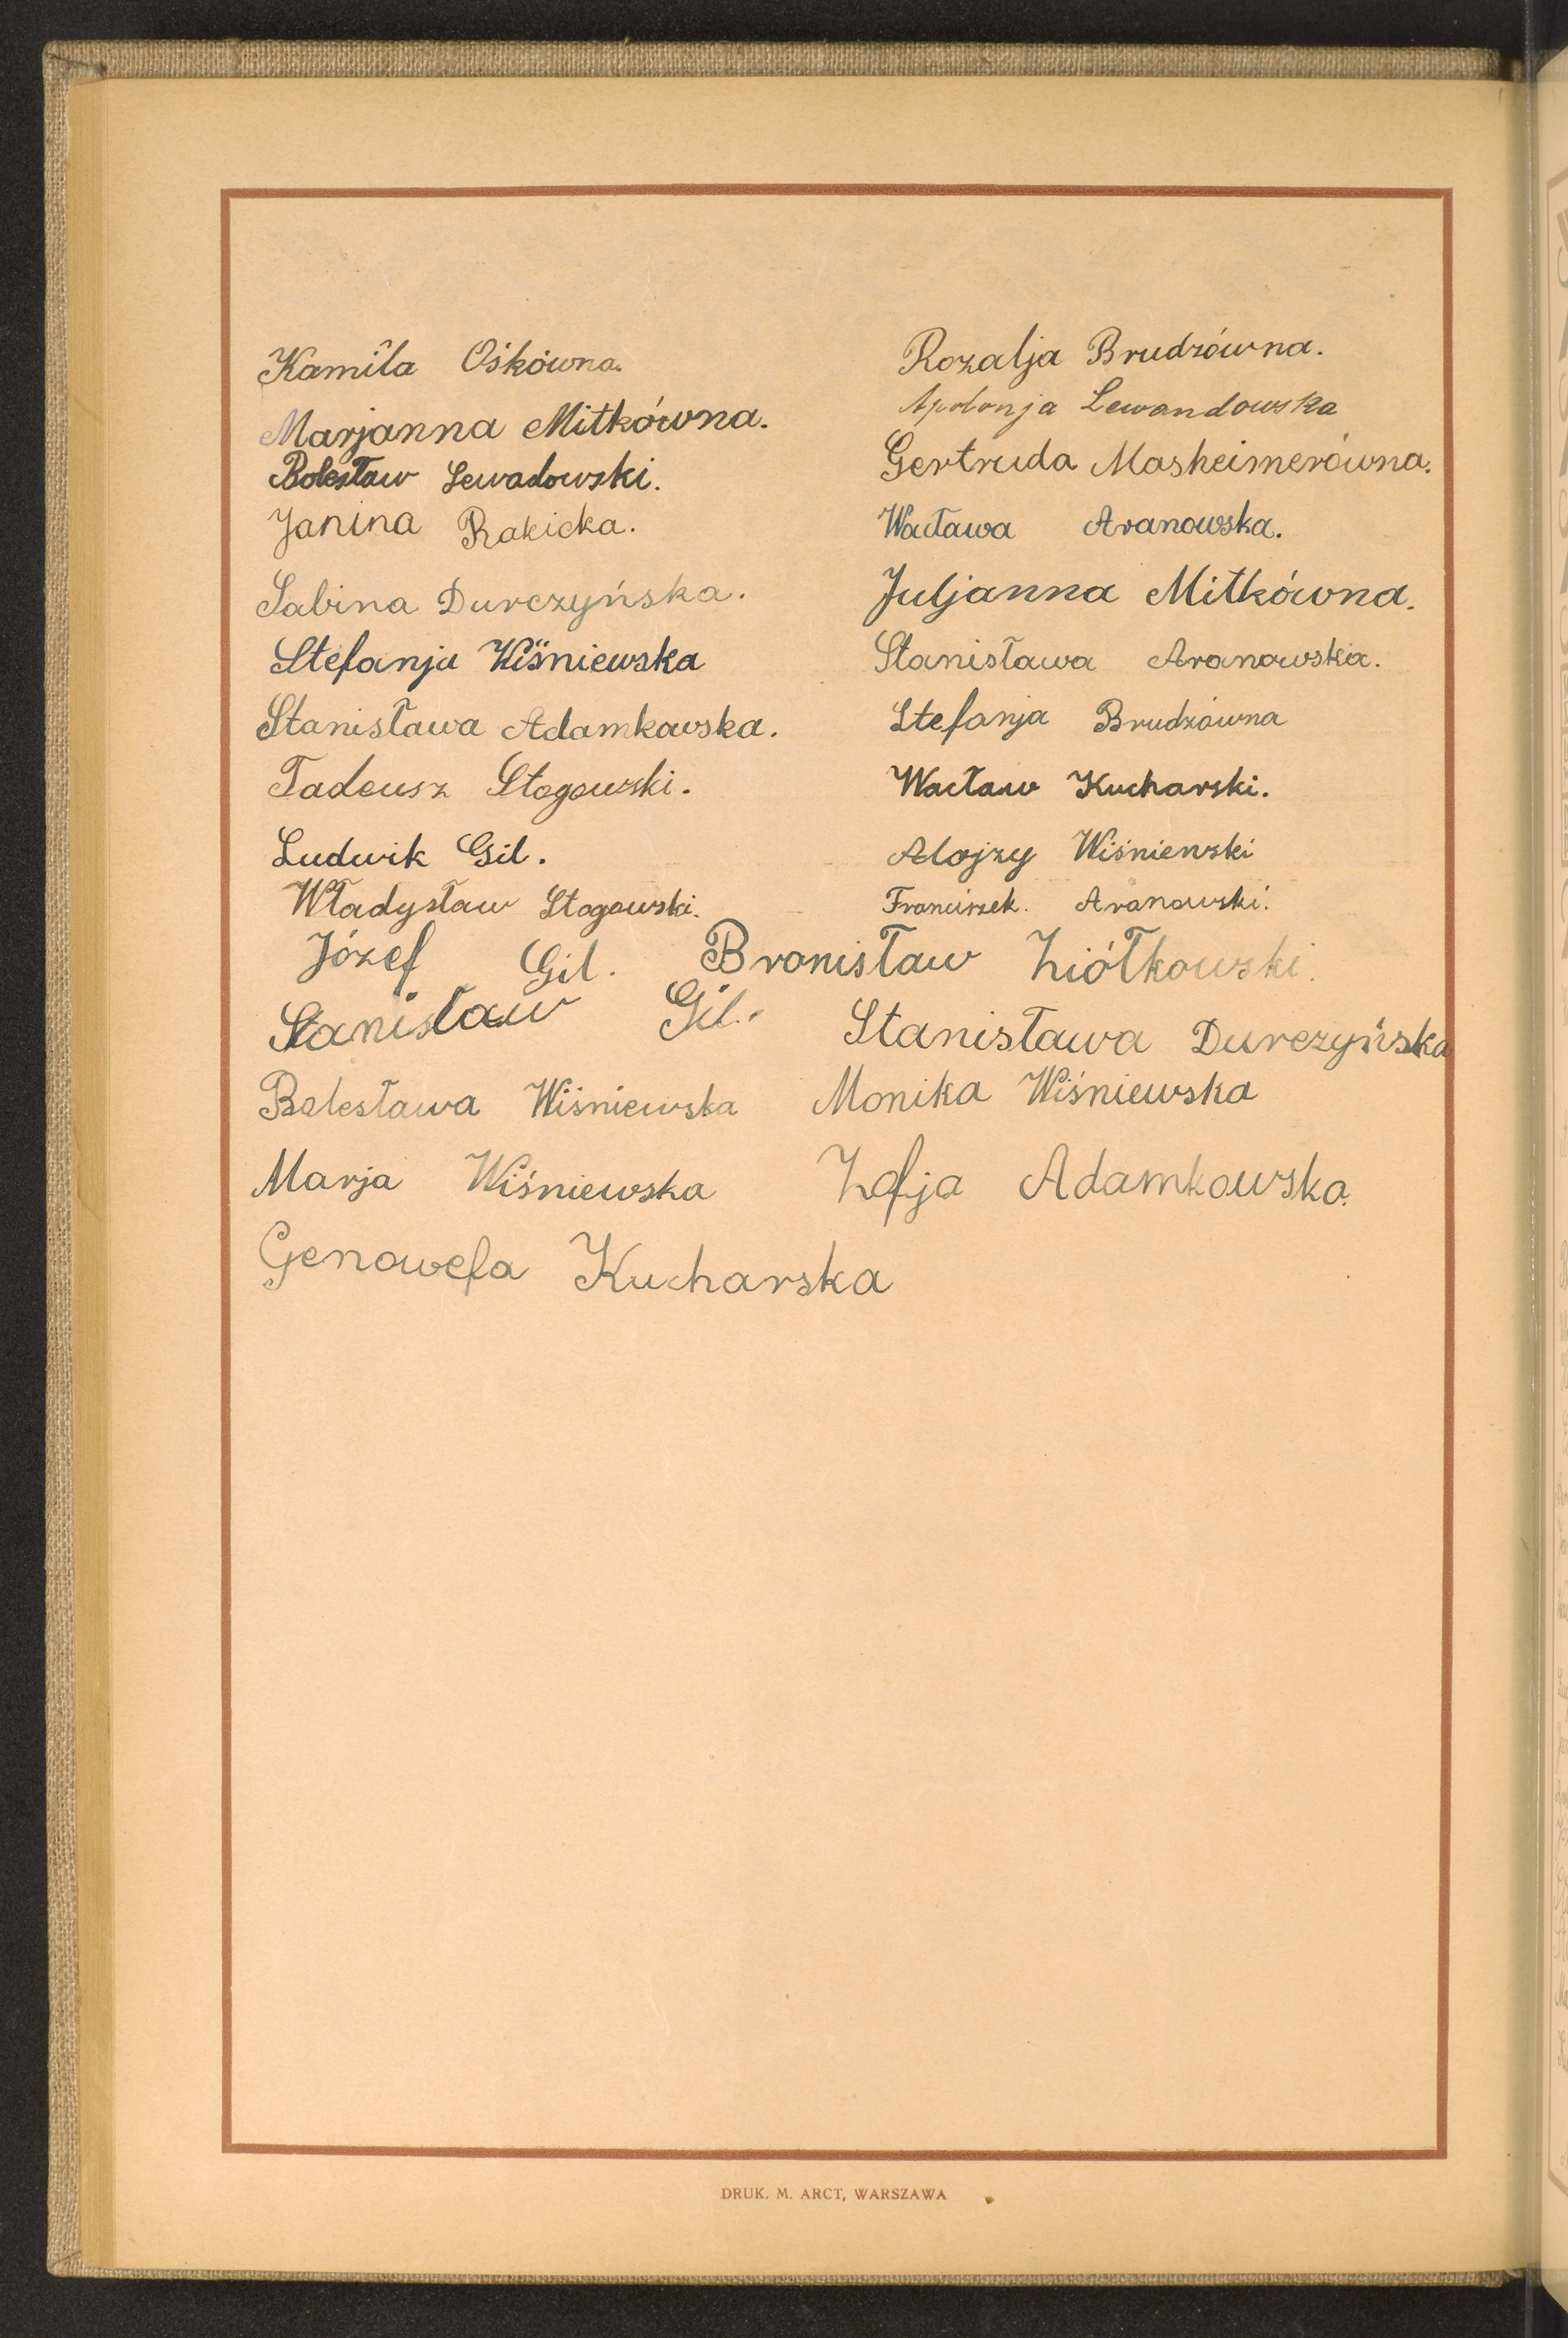 Kamila Ośkówna. Rozalja Brudzówna.
Apolonja Lewandowska
Marjanna Mitkówna.
Gertruda Masheimerówna.
Bolesław Lewadowski.
Janina Rakicka. Wacława Aranowska.
Sabina Durczyńska. Juljanna Mitkówna.
Stefanja Wiśniewska Stanisława Aranowska.
Stanisława Adamkowska. Stefanja Brudzówna
Tadeusz Stogowski. Wacław Kucharski.
Ludwik Gil. Alojzy Wiśniewski
Władysław Stogowski. Franciszek. Aranowski.
Józef Gil. Bronisław Ziółkowski.
Stanisław Gil. Stanisława Durczyńska
Bolesława Wiśniewska Monika Wiśniewska
Marja Wiśniewska Zofja Adamkowska.
Genowefa Kucharska
DRUK. M. ARCT, WARSZAWA